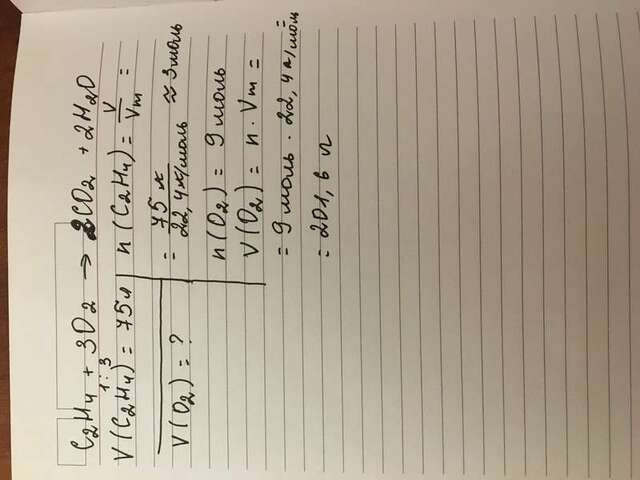 C2H4 + 3O2 → 2CO2 + 2H2O
1 : 3
V(C2H4) = 75 л
V(O2) = ?
n(C2H4) = V/Vm =
= 75 л / 22,4 л/моль ≈ 3 моль
n(O2) = 9 моль
V(O2) = n · Vm =
= 9 моль · 22,4 л/моль =
= 201,6 л